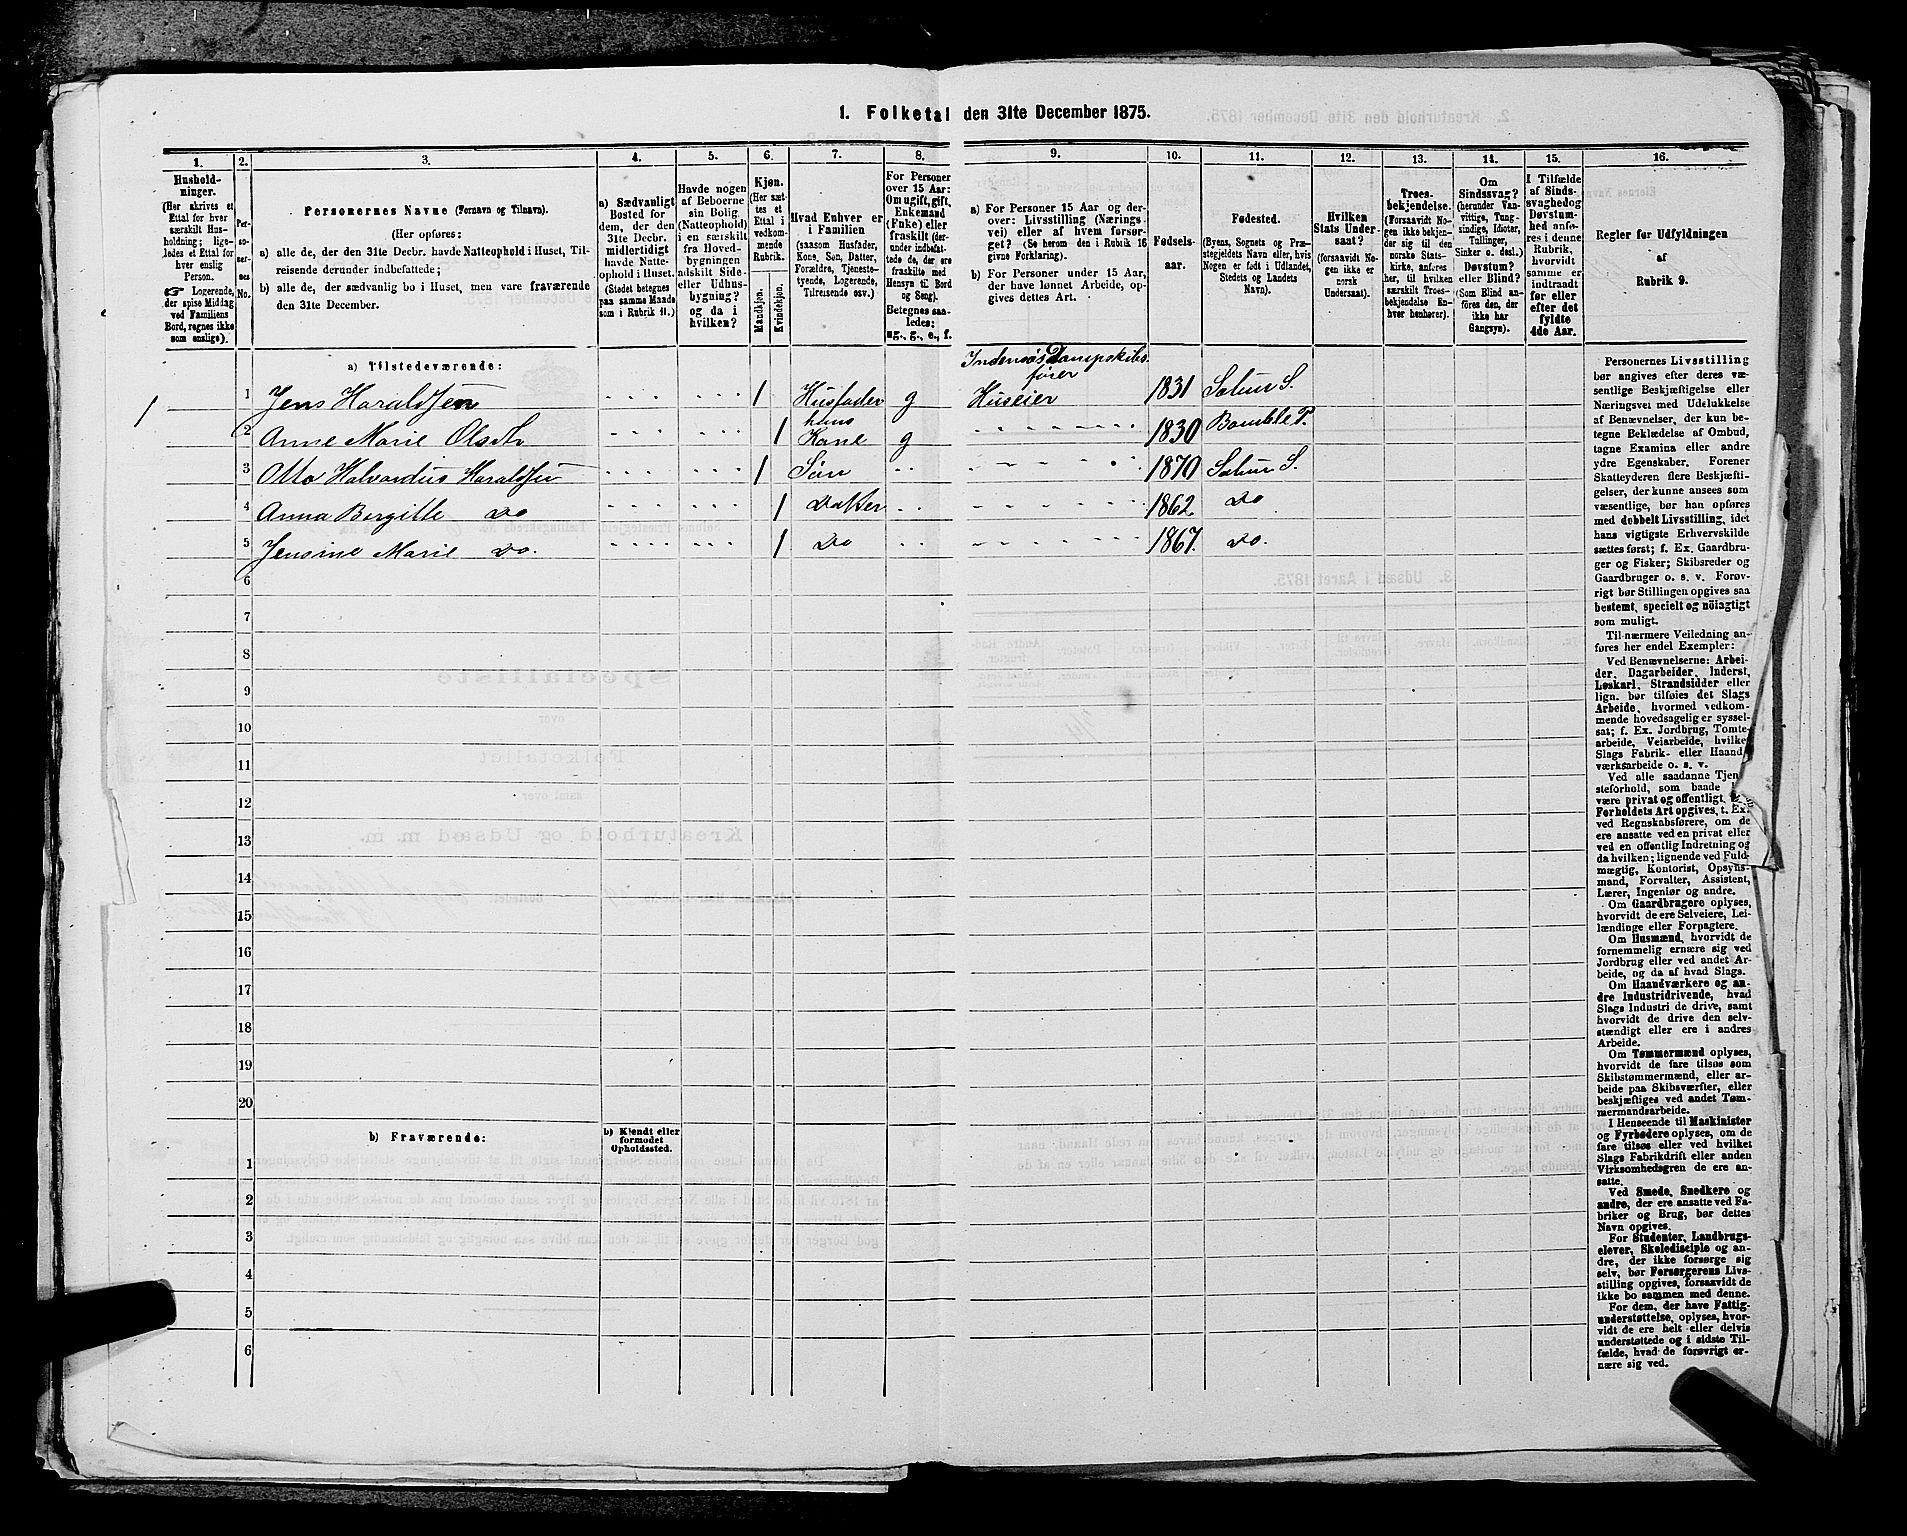 1. Folketal den 31te December 1875.
1. 2. 3. 4. 5. 6. 7. 8. 9. 10. 11. 12. 13. 14. 15. 16.
Hushold-
ninger.
(Her skrives et
Ettal for hver
særskilt Hus-
holdning; lige-
ledes et Ettal for
hver enslig
Person.
☞ Logerende,
der spise Middag
ved Familiens
Bord, regnes ikke
som enslige).
Per-
so-
ner-
nes
No.
Personernes Navne (Fornavn og Tilnavn).
(Her opføres:
a) alle de, der den 31te Decbr. havde Natteophold i Huset, Til-
reisende derunder indbefattede;
b) alle de, der sædvanlig bo i Huset, men vare fraværende
den 31te December.
a) Sædvanligt
Bosted for
dem, der den
31te Decbr.
midlertidigt
havde Natte-
ophold i Huset.
(Stedet betegnes
paa samme Maade
som i Rubrik 11.)
Havde nogen
af Beboerne
sin Bolig
(Natteophold)
i en særskilt
fra Hoved-
bygningen
adskilt Side-
eller Udhus-
bygning?
og da i
hvilken?
Kjøn.
(Her sæt-
tes et
Ettal i
vedkom-
mende
Rubrik.
Mandkjøn.
Kvindekjøn.
Hvad Enhver er
i Familien
(saasom Husfader,
Kone, Søn, Datter,
Forældre, Tjeneste-
tyende, Logerende,
Tilreisende osv.)
For Personer
over 15 Aar:
Om ugift, gift,
Enkemand
(Enke) eller
fraskilt (der-
under indbefat-
tede de, der ere
fraskilte med
Hensyn til Bord
og Seng).
Betegnes saa-
ledes:
ug., g., e., f.
a) For Personer 15 Aar og der-
over: Livsstilling (Nærings-
vei) eller af hvem forsør-
get? (Se herom den i Rubrik 16
givne Forklaring).
b) For Personer under 15 Aar,
der have lønnet Arbeide, op-
gives dettes Art.
Fødsels-
aar.
Fødested.
(Byens, Sognets og Præ-
stegjeldets Navn eller, hvis
Nogen er født i Udlandet,
Stedets og Landets
Navn).
Hvilken
Stats Under-
saat?
(forsaavidt No-
gen ikke er
norsk
Undersaat).
Troes-
bekjendelse.
(Forsaavidt No-
gen ikke bekjen-
der sig til den
norske Stats-
kirke, anføres
her, til hvilken
særskilt Troes-
bekjendelse En-
hver henhører).
Om
Sindssvag?
(herunder Van-
vittige, Tung-
sindige, Idioter,
Tullinger,
Sinker o. desl.)
Døvstum?
eller Blind?
(Som Blind an-
føres den, der
ikke har
Gangsyn).
I Tilfælde
af Sinds-
svaghed og
Døvstum-
hed anfø-
res i denne
Rubrik,
hvorvidt
samme er
indtraadt
før eller
efter det
fyldte
4de Aar.
Regler for Udfyldningen
af
Rubrik 9.
a) Tilstedeværende:
Indensøs Dampskibs
fører
1 1 Jens Haraldsen 1 Husfader g Huseier 1831 Solum S.
hans
2 Anne Marie Olsdtr 1 Kone g 1830 Bamble P.
3 Otto Halvardus Haraldsen 1 Søn 1870 Solum S.
4 Anna Birgitte Do 1 Datter 1862 Do
5 Jensine Marie Do. 1 Do 1867. Do.
6
7
8
9
10
11
12
13
14
15
16
17
18
19
20
b) Fraværende:
b) Kjendt eller
formodet
Opholdssted.
1
2
3
4
5
6
Personernes Livsstilling
bør angives efter deres væ-
sentlige Beskjæftigelse eller
Næringsvei med Udelukkelse
af Benævnelser, der kun be-
tegne Beklædelse af Ombud,
tagne Examina eller andre
ydre Egenskaber. Forener
Skatteyderen flere Beskjæfti-
gelser, der kunne ansees som
væsentlige, bør han opføres
med dobbelt Livsstilling, idet
hans vigtigste Erhvervskilde
sættes først; f. Ex. Gaardbru-
ger og Fisker; Skibsreder og
Gaardbruger o. s. v. Forøv-
rigt bør Stillingen opgives saa
bestemt, specielt og nöiagtigt
som muligt.
Til nærmere Veiledning an-
føres her endel Exempler:
Ved Benævnelserne: Arbei-
der, Dagarbeider, Inderst,
Løskarl, Strandsidder eller
lign. bør tilføies det Slags
Arbeide, hvormed vedkom-
mende hovedsagelig er syssel-
sat; f. Ex. Jordbrug, Tomte-
arbeide, Veiarbeide, hvilket
Slags Fabrik- eller Haand-
værksarbeide o. s. v.
Ved alle saadanne Tjen-
steforhold, som baade
være privat og offentligt,
Forholdets Art opgives, t. Ex.
ved Regnskabsførere, om de
ere ansatte ved en privat eller
ved en offentlig Indretning og
da hvilken; lignende ved Fuld-
mægtig, Kontorist, Opsyns-
mand, Forvalter, Assistent,
Lærer, Ingeniør og andre.
Om Gaardbrugere oplyses,
hvorvidt de ere Selveiere, Lei-
lændinge eller Forpagtere.
Om Husmænd, hvorvidt de
fornemmelig ernære sig ved
Jordbrug eller ved andet Ar-
beide, og da af hvad Slags.
Om Haandværkere og an-
dre Industridrivende, hvad
Slags Industri de drive, samt
hvorvidt de drive den selv-
stændigt eller ere i andres
Arbeide.
Om Tømmermænd oplyses,
hvorvidt de fare tilsøs som
Skibstømmermænd, eller ar-
beide paa Skibsværfter, eller
beskjæftiges ved andet Tøm-
mermandsarbeide.
I Henseende til Maskinister
og Fyrbødere oplyses, om de
fare tilsøs eller ved hvilket
Slags Fabrikdrift eller anden
Virksomhedsgren de ere an-
satte.
Ved Smede, Snedkere og
andre, der ere ansatte ved Fa-
briker og Brug, bør dettes
Navn opgives.
For Studenter, Landbrugs-
elever, Skoledisciple og an-
dre, der ikke forsørge sig
selv, bør Forsørgerens Livs-
stilling opgives, forsaavidt de
ikke bo sammen med denne.
For dem, der have Fattig-
understøttelse, oplyses, hvor-
vidt de ere helt eller delvis
understøttede og i sidste Til-
fælde, hvad de forøvrigt er-
nære sig ved.